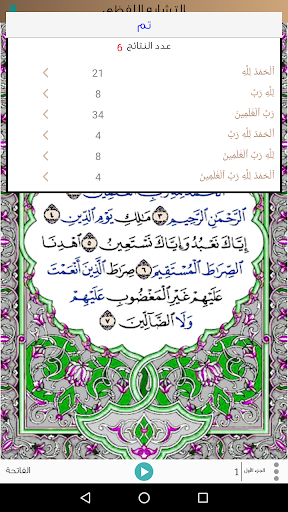 التشابه اللفظي
تم
عدد النتائج 6
اَلحَمدُ لِلَّهِ 21
لِلَّهِ رَبِّ 8
رَبِّ اَلعَٰلَمِينَ 34
اَلحَمدُ لِلَّهِ رَبِّ 4
لِلَّهِ رَبِّ اَلعَٰلَمِينَ 8
اَلحَمدُ لِلَّهِ رَبِّ اَلعَٰلَمِينَ 4
الرَّحْمَٰنِ الرَّحِيمِ ٣ مَٰلِكِ يَوْمِ الدِّينِ ٤
إِيَّاكَ نَعْبُدُ وَإِيَّاكَ نَسْتَعِينُ ٥ اهْدِنَا
الصِّرَٰطَ الْمُسْتَقِيمَ ٦ صِرَٰطَ الَّذِينَ أَنْعَمْتَ
عَلَيْهِمْ غَيْرِ الْمَغْضُوبِ عَلَيْهِمْ
وَلَا الضَّالِّينَ ٧
الجزء الأول 1 الفاتحة